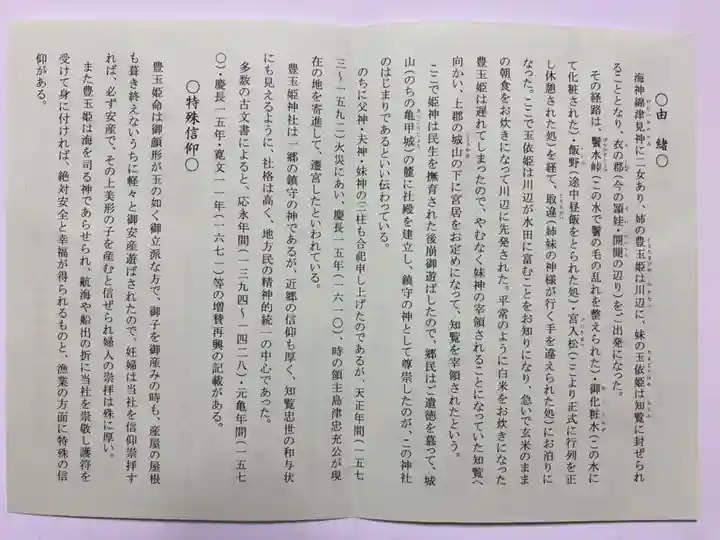 ○由　緒○
海神綿津見神に二女あり、姉の豊玉姫は川辺に、妹の玉依姫は知覧に封ぜられ
ることとなり、衣の郡(今の頴娃・開聞の辺り)をご出発になった。
その経路は、鬢水峠(この水で鬢の毛の乱れを整えられた)・御化粧水(この水に
て化粧された)・飯野(途中昼飯をとられた処)・宮入松(ここより正式に行列を正
し休憩された処)を経て、取違(姉妹の神様が行く手を違えられた処)にお泊りに
なった。ここで玉依姫は川辺が水田に富むことをお知りになり、急いで玄米のまま
の朝食をお炊きになって川辺に先発された。平常のように白米をお炊きになった
豊玉姫は遅れてしまったので、やむなく妹神の宰領されることになっていた知覧へ
向かい、上郡の城山の下に宮居をお定めになって、知覧を宰領されたという。
ここで姫神は民生を撫育された後崩御遊ばしたので、郷民はご遺徳を慕って、城
山(のちの亀甲城)の麓に社殿を建立し、鎮守の神として尊崇したのが、この神社
のはじまりであるといい伝わっている。
のちに父神・夫神・妹神の三柱も合祀申し上げたのであるが、天正年間(一五七
三～一五九二)火災にあい、慶長一五年(一六一〇)、時の領主島津忠充公が現
在の地を寄進して、遷宮したといわれている。
豊玉姫神社は一郷の鎮守の神であるが、近郷の信仰も厚く、知覧忠世の和与状
にも見えるように、社格は高く、地方民の精神的統一の中心であった。
多数の古文書によると、応永年間(一三九四～一四二八)・元亀年間(一五七
〇)・慶長一五年・寛文一一年(一六七一)等の増賛再興の記載がある。
○特殊信仰○
豊玉姫命は御顔形が玉の如く御立派な方で、御子を御産みの時も、産屋の屋根
も葺き終えないうちに軽々と御安産遊ばされたので、妊婦は当社を信仰崇拝す
れば、必ず安産で、その上美形の子を産むと信ぜられ婦人の崇拝は殊に厚い。
また豊玉姫は海を司る神であらせられ、航海や船出の折に当社を崇敬し護符を
受けて身に付ければ、絶対安全と幸福が得られるものと、漁業の方面に特殊の信
仰がある。